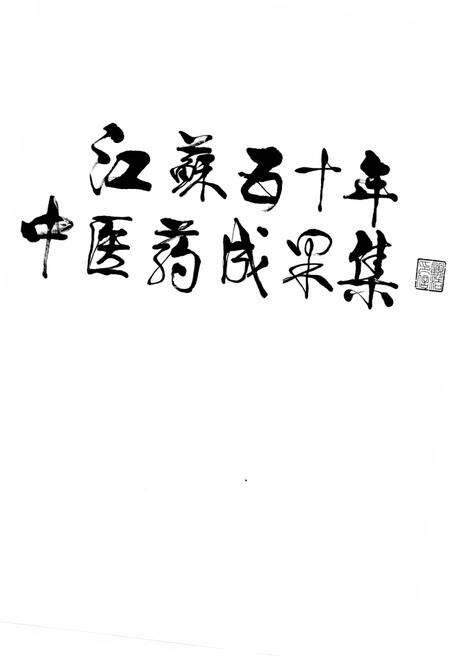 江蘇五十年
中医药成果集